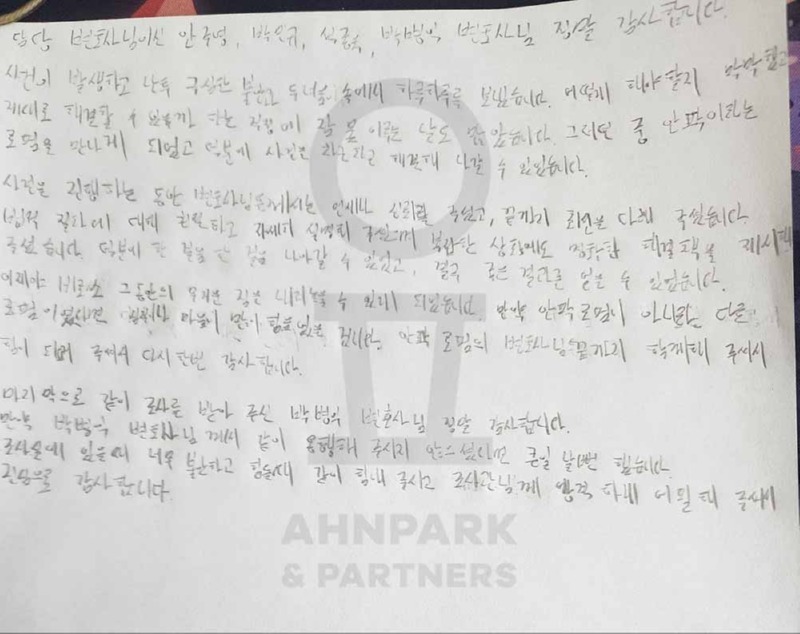 담당 변호사님이신 안주영, 박인규, 박병익 변호사님 정말 감사합니다.
사건이 발생하고 난 후 불안과 두려움 속에서 하루하루를 보냈습니다. 어떻게 해야할지 막막했고
제대로 해결할 수 있을까 하는 걱정에 잠 못 이루는 날도 많았습니다. 그러던 중 안팍이라는
로펌을 만나게 되었고 덕분에 사건을 차근차근 해결해 나갈 수 있었습니다.
사건을 진행하는 동안 변호사님들께서는 언제나 신뢰를 주셨고, 끝까지 최선을 다해 주셨습니다.
법적 절차에 대해 친절하고 자세히 설명해 주셨으며 복잡한 상황에도 정확한 해결책을 제시해
주셨습니다. 덕분에 한 걸음 한 걸음 나아갈 수 있었고, 결국 좋은 결과를 얻을 수 있었습니다.
이제야 비로소 그동안의 무거운 짐을 내려놓을 수 있게 되었습니다. 만약 안팍 로펌이 아니라 다른
로펌이었다면 마음이 많이 힘들었을 겁니다. 안팍 로펌의 변호사님 끝까지 함께해 주셔서
힘이 되어 주셔서 다시한번 감사합니다.
마지막으로 같이 조사를 받아 주신 박병익 변호사님 정말 감사합니다.
만약 박병익 변호사님께서 같이 동행해 주시지 않으셨다면 큰일 날뻔 했습니다.
조사실에 있을때 너무 불안하고 힘들때 같이 힘내 주시고 조사관님께 해 주셔서
진심으로 감사합니다.
AHNPARK
& PARTNERS